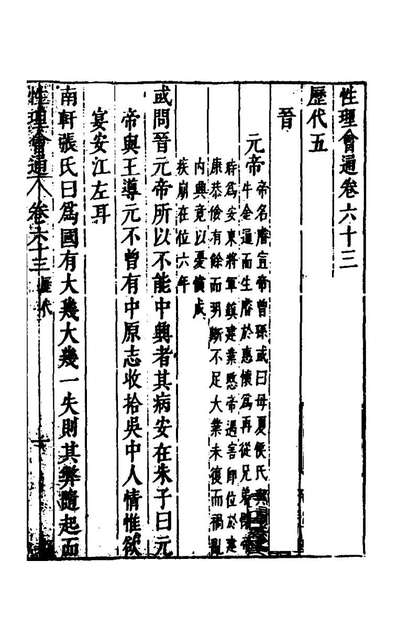 性理會通卷六十三
歷代五
晉
元帝
帝名睿宣帝曾孫或曰母夏侯氏與
牛金通而生睿於惠懷為再從兄弟懷帝
時為安東將軍鎮建業愍帝遇害即位於建
康恭儉有餘而明斷不足大業未復而禍亂
內興竟以憂憤成
疾崩在位六年
或問晉元帝所以不能中興者其病安在朱子曰元
帝與王導元不曾有中原志收拾吳中人情惟欲
宴安江左耳
南軒張氏曰為國有大幾大幾一失則其弊隨起而
性理會通 卷六十三 歷代